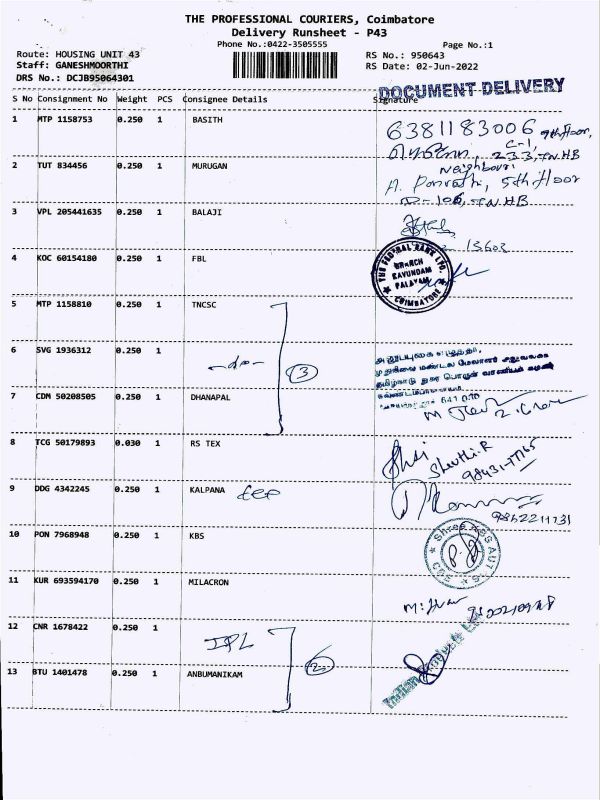 THE PROFESSIONAL COURIERS, Coimbatore
Delivery Runsheet - P43
Phone No.:0422-3505555
Page No.:1
Route: HOUSING UNIT 43
RS No.: 950643
Staff: GANESHMOORTHI
RS Date: 02-Jun-2022
DRS No.: DCJB95064301
DOCUMENT DELIVERY
S No Consignment No Weight PCS Consignee Details Signature
1 MTP 1158753 0.250 1 BASITH
6381183006 9th floor,
C-1, 233, TNHB
2 TUT 834456 0.250 1 MURUGAN
Neighbour
5th floor
D-106, TNHB
3 VPL 205441635 0.250 1 BALAJI
4 KOC 60154180 0.250 1 FBL
THE FEDERAL BANK LTD.
BRANCH
KAVUNDAM
PALAYAM
COIMBATORE
5 MTP 1158810 0.250 1 TNCSC
6 SVG 1936312 0.250 1
-do- 3
7 CDM 50208505 0.250 1 DHANAPAL
8 TCG 50179893 0.030 1 RS TEX
Shruthi.R
9 DDG 4342245 0.250 1 KALPANA
10 PON 7968948 0.250 1 KBS
11 KUR 693594170 0.250 1 MILACRON
12 CNR 1678422 0.250 1
IPL 2
13 BTU 1401478 0.250 1 ANBUMANIKAM